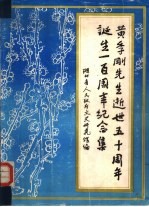 黄季刚先生逝世五十周年
誕生一百周年紀念集
湖北省人民政府文史研究馆编